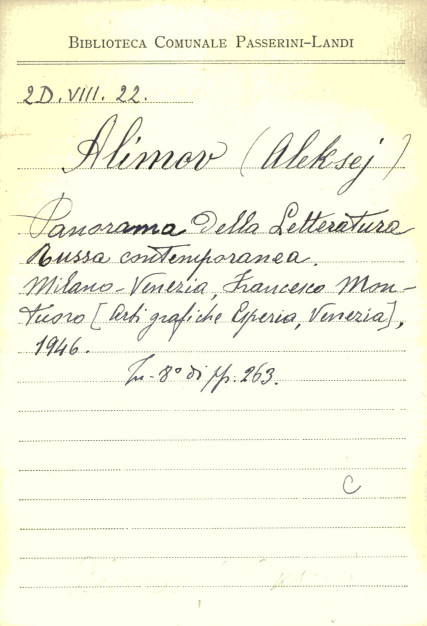 BIBLIOTECA COMUNALE PASSERINI-LANDI
2D. VIII. 22.
Alimov (Aleksej)
Panorama della Letteratura
Russa contemporanea.
Milano-Venezia, Francesco Mon-
tuoro [Arti grafiche Esperia, Venezia],
1946.
In-8° di pp. 263.
C